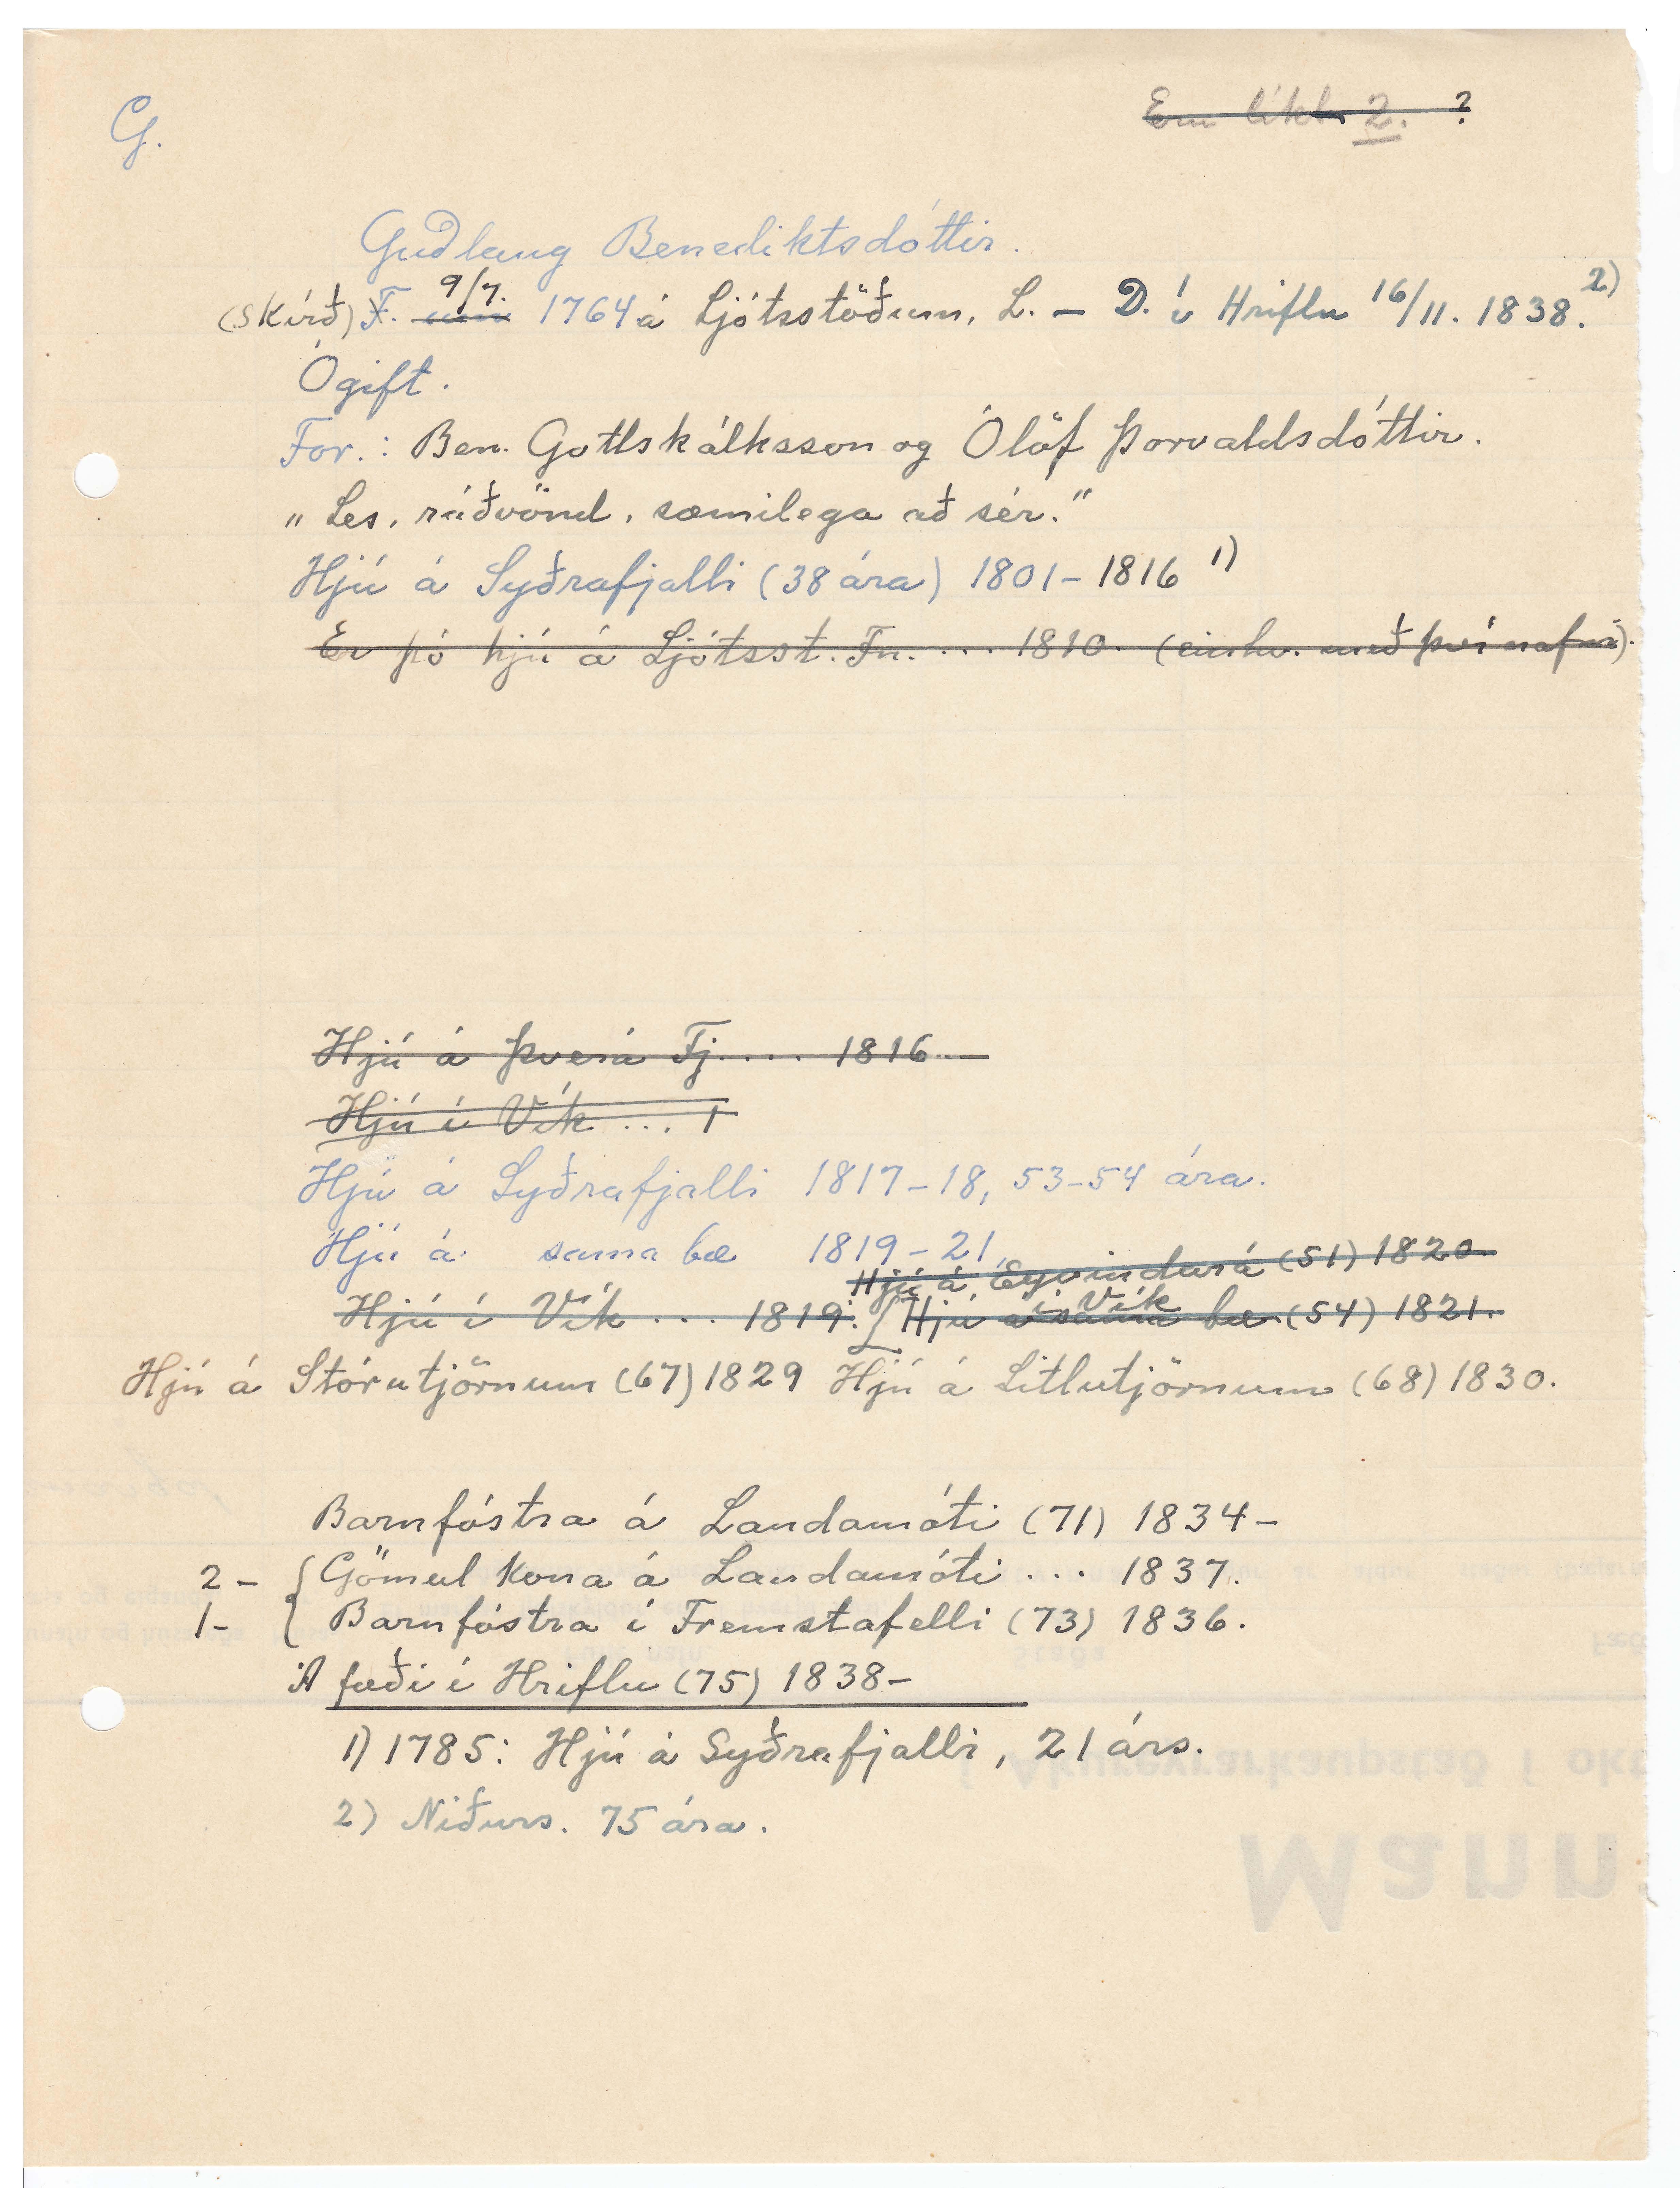 G.
Em líkl. 2. ?
Guðlaug Benediktsdóttir.
(skírð) F. um 9/7. 1764 á Ljótsstöðum, L. – D. í Hriflu 16/11. 1838. 2)
Ógift.
For.: Ben. Gottskálksson og Ólöf Þorvaldsdóttir.
„Les, ráðvönd, sæmilega að sér."
Hjú á Syðrafjalli (38 ára) 1801 – 1816 1)
Er þó hjú á Ljótsst. Fn. ... 1810. (einhv. með því nafni).
Hjú á Þverá Fj. ... 1816. –
Hjú í Vík ... 1
Hjú á Syðrafjalli 1817 – 18, 53 – 54 ára.
Hjú á sama bæ 1819 – 21.
Hjú á Eyvindará (51) 1820.
Hjú í Vík ... 1819. [Hjú á sama bæ í Vík (54) 1821.
Hjú á Stórutjörnum (67) 1829 Hjú á Litlutjörnum (68) 1830.
Barnfóstra á Landamóti (71) 1834 –
2 – { Gömul kona á Landamóti ... 1837.
1 – { Barnfóstra í Fremstafelli (73) 1836.
Á fæði í Hriflu (75) 1838 –
1) 1785: Hjú á Syðrafjalli, 21 árs.
2) Niðurs. 75 ára.
Akureyrarkaupstað í okt
Mann